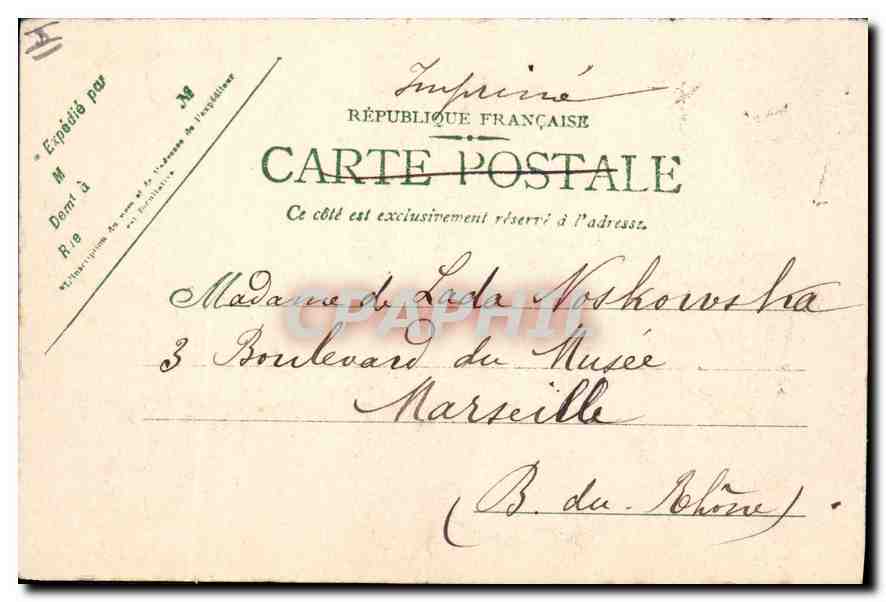 Imprimé
RÉPUBLIQUE FRANÇAISE
CARTE POSTALE
Ce côté est exclusivement réservé à l'adresse.
* Expédié par
M
Demt à
Rue
Nº
*L'inscription du nom et de l'adresse de l'expéditeur
est facultative
Madame de Lada Noskowska
3 Boulevard du Musée
Marseille
(B. du Rhône)
CPAPHIL